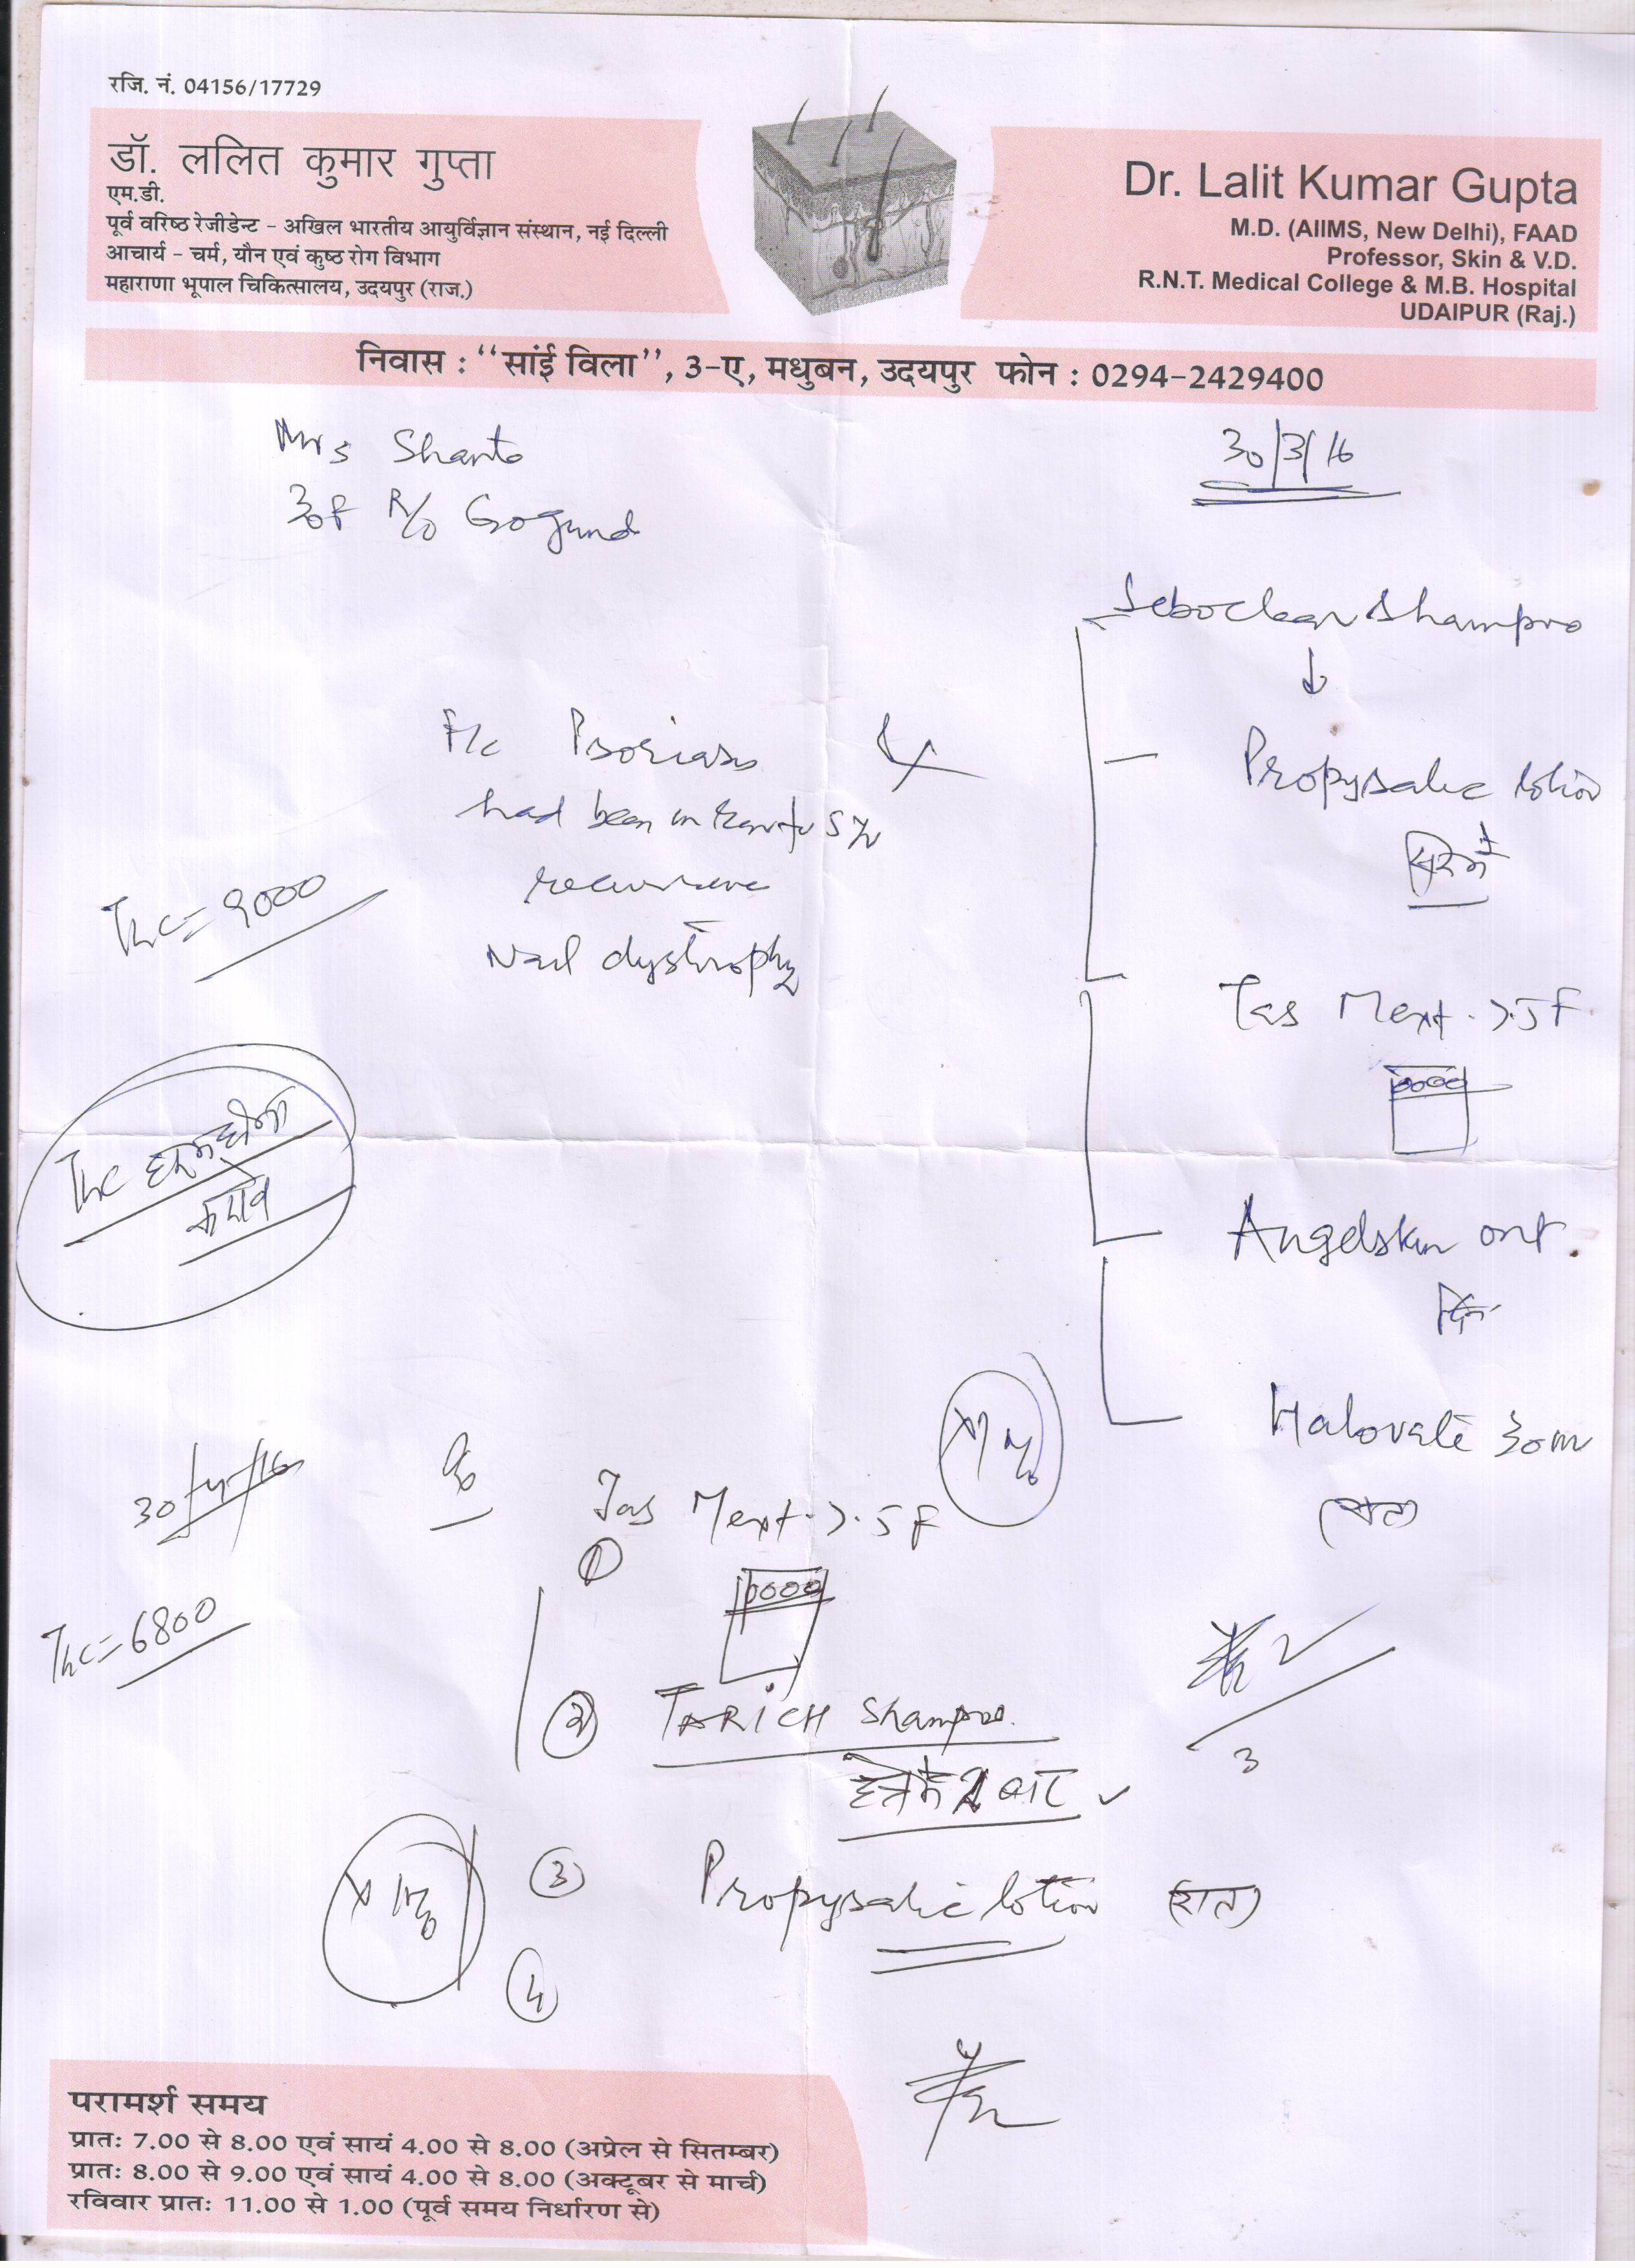 रजि. नं. 04156/17729
डॉ. ललित कुमार गुप्ता
एम.डी.
पूर्व वरिष्ठ रेजीडेन्ट - अखिल भारतीय आयुर्विज्ञान संस्थान, नई दिल्ली
आचार्य - चर्म, यौन एवं कुष्ठ रोग विभाग
महाराणा भूपाल चिकित्सालय, उदयपुर (राज.)
Dr. Lalit Kumar Gupta
M.D. (AIIMS, New Delhi), FAAD
Professor, Skin & V.D.
R.N.T. Medical College & M.B. Hospital
UDAIPUR (Raj.)
निवास : "सांई विला", ३-ए, मधुबन, उदयपुर फोन : 0294-2429400
Mrs Shanta
30F R/o Gogund
30/3/16
Seboclear Shampoo
↓
Propysalic lotion
Psoriasis
had been
Nail dystrophy
TLC = 9000
Tab Mext 7.5
0000
TLC
Angelskin ont.
Halovate 30m
30/4/16
Tab Mext 7.5
①
0000
TLC = 6800
② TARICH Shampoo.
बार
③ Propysalic lotion (रात)
④
परामर्श समय
प्रातः 7.00 से 8.00 एवं सायं 4.00 से 8.00 (अप्रेल से सितम्बर)
प्रातः 8.00 से 9.00 एवं सायं 4.00 से 8.00 (अक्टूबर से मार्च)
रविवार प्रातः 11.00 से 1.00 (पूर्व समय निर्धारण से)